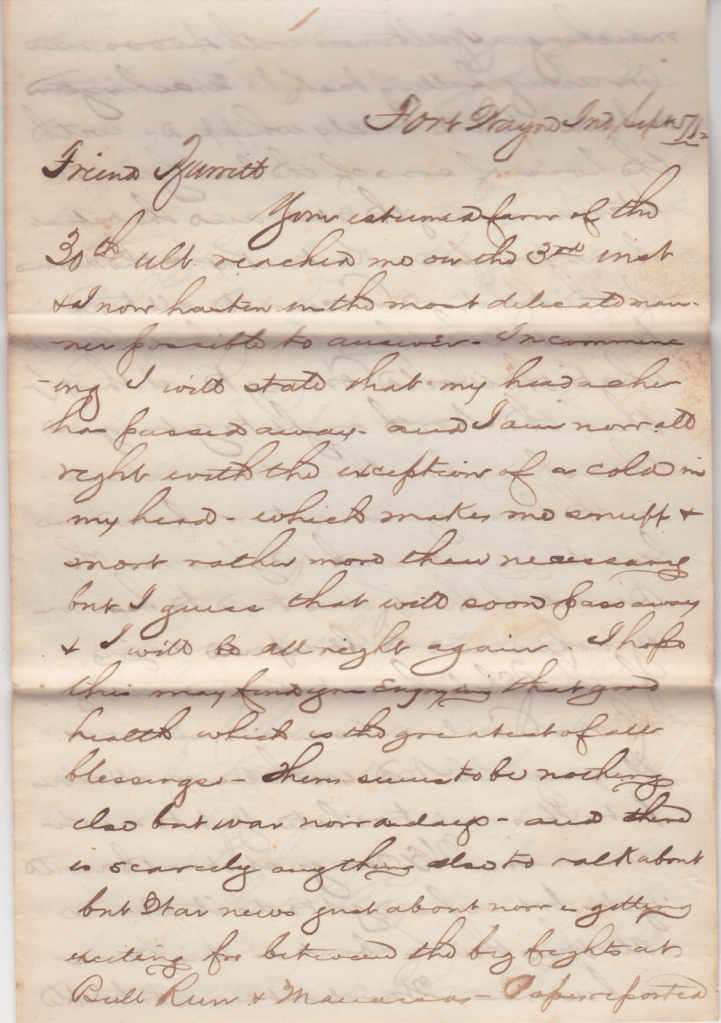 Fort Wayne Ind, Sept 5/62
Friend Burritt
Your esteemed favor of the
30th ult. reached me on the 3rd inst
& I now hasten in the most delicate man-
ner possible to answer - In commenc
-ing I will state that my headache
has passed away - and I am now all
right with the exception of a cold in
my head - which makes me snuff &
snort rather more than necessary
but I guess that will soon pass away
& I will be all right again. I hope
this may find you enjoying that good
health which is the greatest of all
blessings - There seems to be nothing
else but war now a days - and there
is scarcely anything else to talk about
but War news just about now - getting
exciting for between the big fights at
Bull Run & Manassas - Papers reported